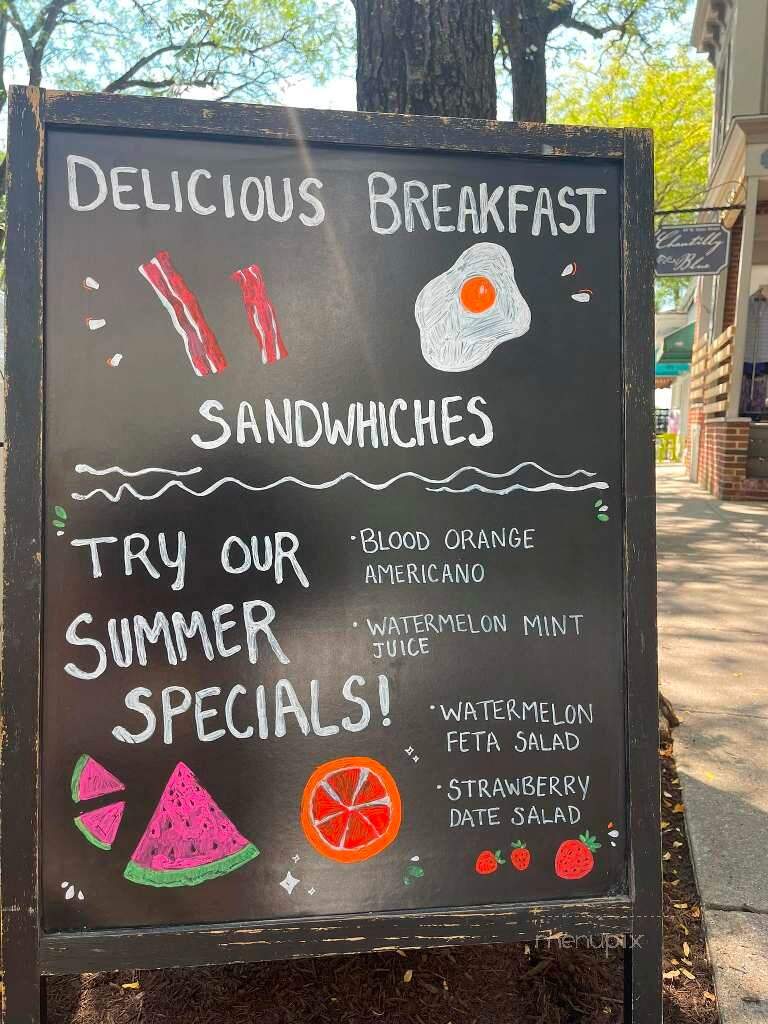 DELICIOUS BREAKFAST
SANDWHICHES
TRY OUR
SUMMER
SPECIALS!
·BLOOD ORANGE
AMERICANO
·WATERMELON MINT
JUICE
·WATERMELON
FETA SALAD
·STRAWBERRY
DATE SALAD
Chantilly
Blue
menupix